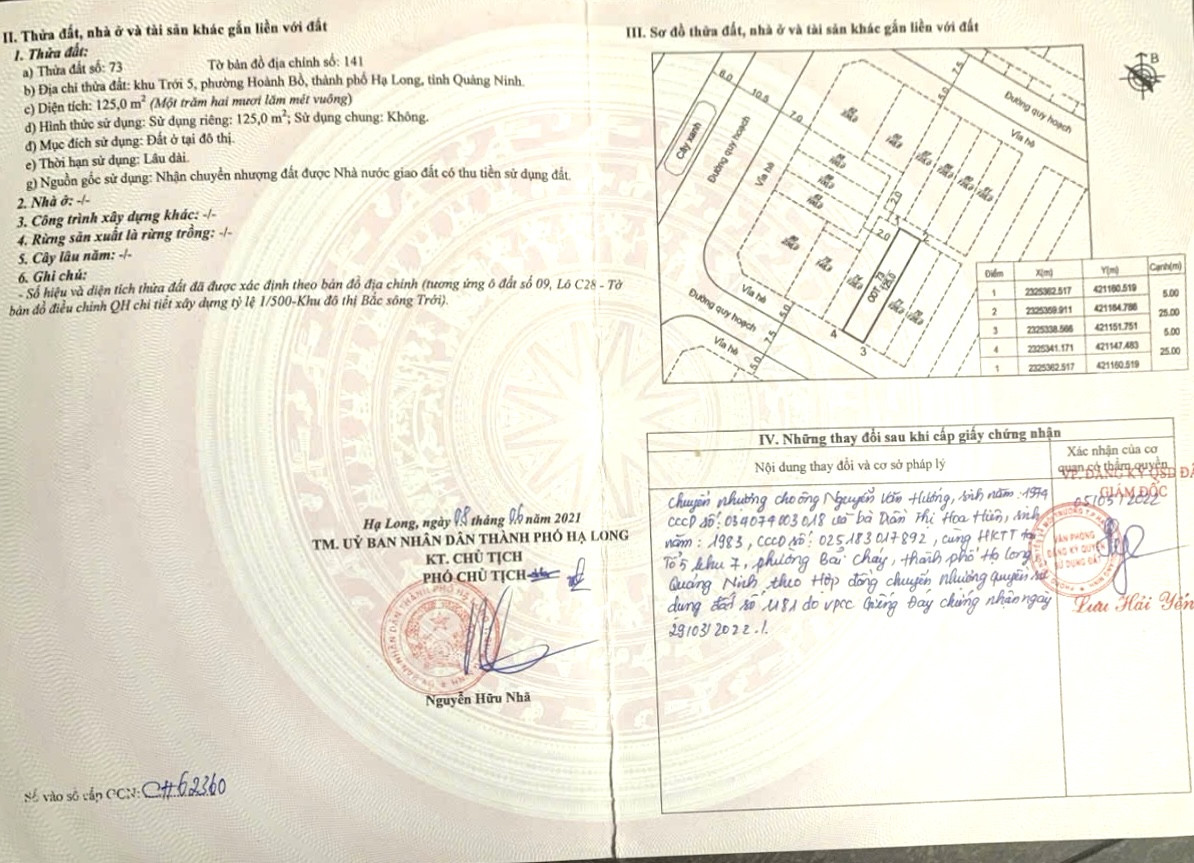 II. Thửa đất, nhà ở và tài sản khác gắn liền với đất
1. Thửa đất:
a) Thửa đất số: 73 Tờ bản đồ địa chính số: 141
b) Địa chỉ thửa đất: khu Trới 5, phường Hoành Bồ, thành phố Hạ Long, tỉnh Quảng Ninh.
c) Diện tích: 125,0 m² (Một trăm hai mươi lăm mét vuông)
d) Hình thức sử dụng: Sử dụng riêng: 125,0 m²; Sử dụng chung: Không.
đ) Mục đích sử dụng: Đất ở tại đô thị.
e) Thời hạn sử dụng: Lâu dài.
g) Nguồn gốc sử dụng: Nhận chuyển nhượng đất được Nhà nước giao đất có thu tiền sử dụng đất.
2. Nhà ở: -/-
3. Công trình xây dựng khác: -/-
4. Rừng sản xuất là rừng trồng: -/-
5. Cây lâu năm: -/-
6. Ghi chú:
- Số hiệu và diện tích thửa đất đã được xác định theo bản đồ địa chính (tương ứng ô đất số 09, Lô C28 - Tờ
bản đồ điều chỉnh QH chi tiết xây dựng tỷ lệ 1/500-Khu đô thị Bắc sông Trới).
Hạ Long, ngày 08 tháng 06 năm 2021
TM. UỶ BAN NHÂN DÂN THÀNH PHỐ HẠ LONG
KT. CHỦ TỊCH
PHÓ CHỦ TỊCH
Nguyễn Hữu Nhã
Số vào sổ cấp GCN: CH62360
III. Sơ đồ thửa đất, nhà ở và tài sản khác gắn liền với đất
B
6.0
10.5
7.0
7.5
5.0
Cây xanh
Đường quy hoạch
Vỉa hè
Đường quy hoạch
Vỉa hè
2.0
2.0
1
2
ODT 73
125.0
4
3
Vỉa hè
Đường quy hoạch
Vỉa hè
5.0
7.5
5.0
Điểm X(m) Y(m) Cạnh(m)
1 2325362.517 421160.519
5.00
2 2325359.911 421164.786
25.00
3 2325338.566 421151.751
5.00
4 2325341.171 421147.483
25.00
1 2325362.517 421160.519
IV. Những thay đổi sau khi cấp giấy chứng nhận
Nội dung thay đổi và cơ sở pháp lý
Xác nhận của cơ
quan có thẩm quyền
VP. ĐĂNG KÝ QSD ĐẤ
GIÁM ĐỐC
05/05/2022
chuyển nhượng cho ông Nguyễn Văn Hướng, sinh năm: 1974
CCCD số: 034074003018 và bà Trần Thị Hoa Hiên, sinh
năm: 1983, CCCD số: 025183017892, cùng HKTT tại
Tổ 5 khu 7, phường Bãi Cháy, thành phố Hạ Long
Quảng Ninh, theo Hợp đồng chuyển nhượng quyền sử
dụng đất số 1181 do VPCC Giếng Đáy chứng nhận ngày
29/03/2022./.
VĂN PHÒNG
ĐĂNG KÝ QUYỀN
SỬ DỤNG ĐẤT
Lưu Hải Yến